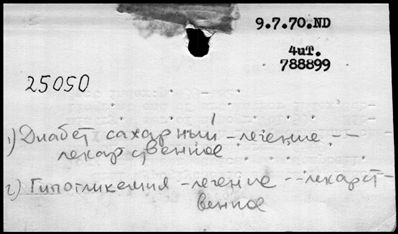 9.7.70.ND
4иТ.
788899
25050
1) Диабет сахарный - лечение --
лекарственное
2) Гипогликемия - лечение -- лекарст-
венное